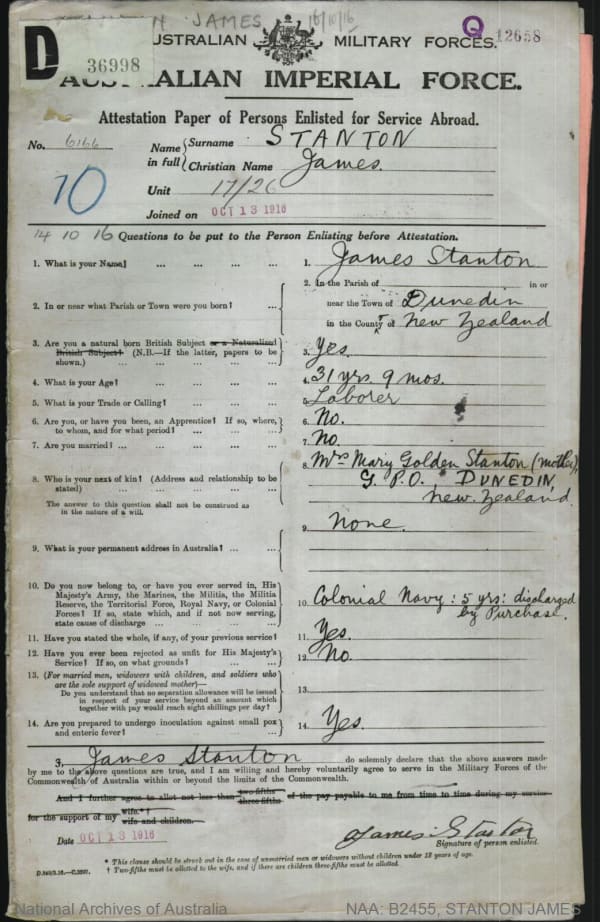 JAMES 16/10/16
D 36998
Q 12658
AUSTRALIAN MILITARY FORCES.
AUSTRALIAN IMPERIAL FORCE.
Attestation Paper of Persons Enlisted for Service Abroad.
No. 6166
Name in full { Surname STANTON
Christian Name James.
70
Unit 17/26
Joined on OCT 13 1916
14 10 16 Questions to be put to the Person Enlisting before Attestation.
1. What is your Name? ... ... ... ... 1. James Stanton
2. In or near what Parish or Town were you born? ... 2. In the Parish of in or
near the Town of Dunedin
in the County of New Zealand
3. Are you a natural born British Subject or a Naturalized
British Subject? (N.B.—If the latter, papers to be
shown.) ... ... ... ... ... 3. Yes.
4. What is your Age? ... ... ... ... 4. 31 yrs. 9 mos.
5. What is your Trade or Calling? ... ... ... 5. Laborer
6. Are you, or have you been, an Apprentice? If so, where,
to whom, and for what period? ... ... ... 6. No.
7. Are you married? ... ... ... ... 7. No
8. Who is your next of kin? (Address and relationship to be
stated) ... ... ... ... ...
The answer to this question shall not be construed as
in the nature of a will.
8. Mrs Mary Golden Stanton (mother),
G.P.O., DUNEDIN,
New Zealand.
9. What is your permanent address in Australia? ... ... 9. None.
10. Do you now belong to, or have you ever served in, His
Majesty's Army, the Marines, the Militia, the Militia
Reserve, the Territorial Force, Royal Navy, or Colonial
Forces? If so, state which, and if not now serving,
state cause of discharge ... ... ... ...
10. Colonial Navy: 5 yrs: discharged
by Purchase.
11. Have you stated the whole, if any, of your previous service? 11. Yes.
12. Have you ever been rejected as unfit for His Majesty's
Service? If so, on what grounds? ... ... 12. No.
13. (For married men, widowers with children, and soldiers who
are the sole support of widowed mother)—
Do you understand that no separation allowance will be issued
in respect of your service beyond an amount which
together with pay would reach eight shillings per day?
13.
14. Are you prepared to undergo inoculation against small pox
and enteric fever? ... ... ... ... 14. Yes.
I, James Stanton do solemnly declare that the above answers made
by me to the above questions are true, and I am willing and hereby voluntarily agree to serve in the Military Forces of the
Commonwealth of Australia within or beyond the limits of the Commonwealth.
And I further agree to allot not less than two-fifths three-fifths of the pay payable to me from time to time during my service
for the support of my wife.*† wife and children.
Date OCT 13 1916
James Stanton
Signature of person enlisted.
* This clause should be struck out in the case of unmarried men or widowers without children under 18 years of age.
† Two-fifths must be allotted to the wife, and if there are children three-fifths must be allotted.
National Archives of Australia
NAA: B2455, STANTON JAMES